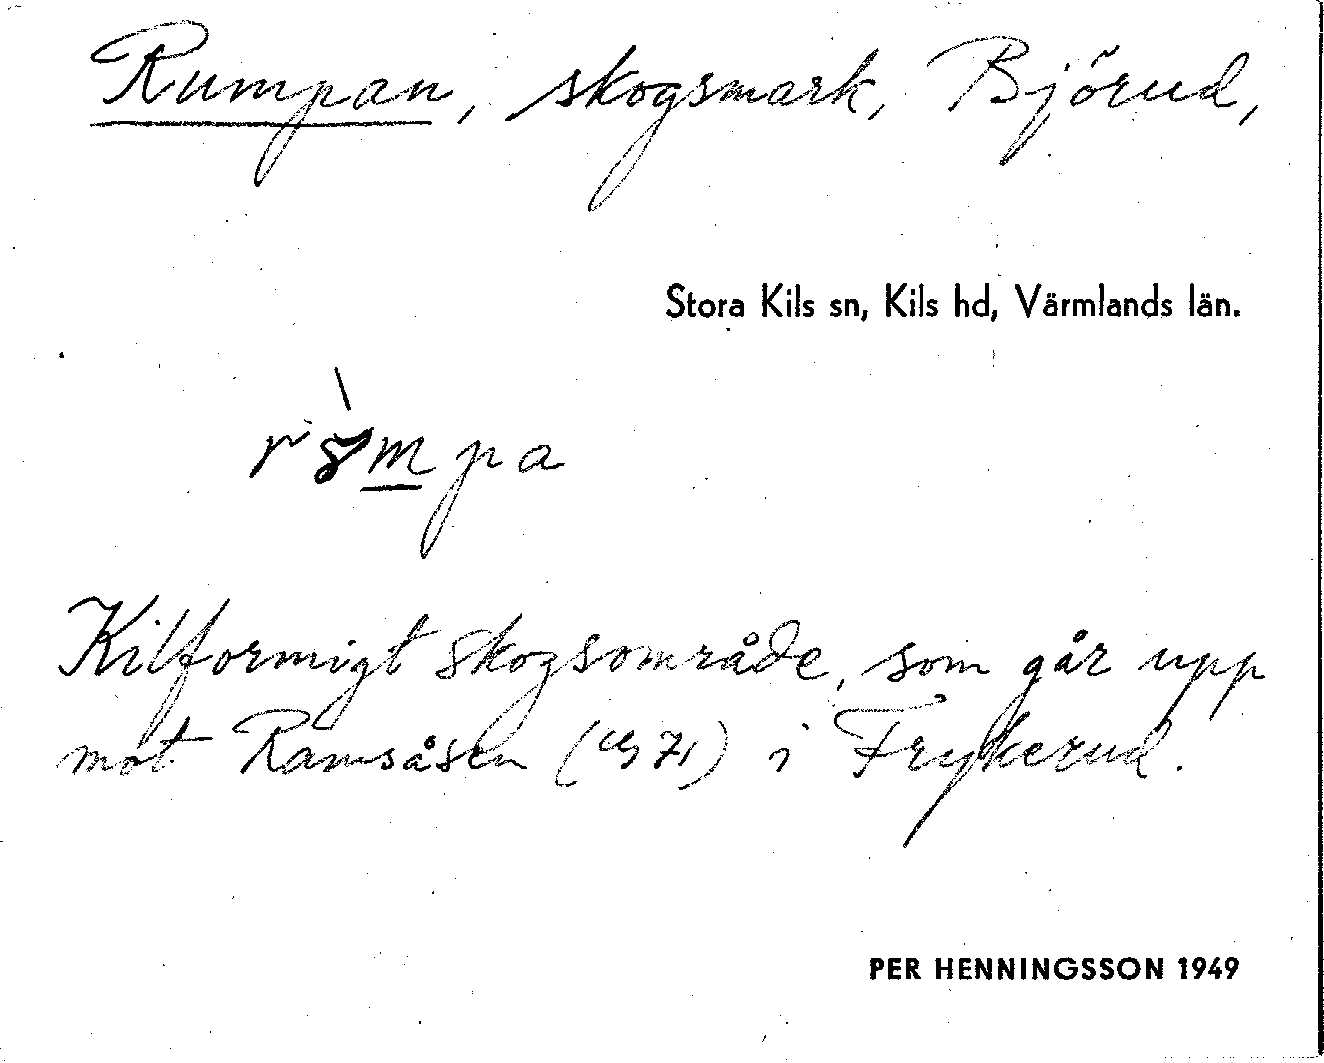 Rumpan, skogsmark, Björud,
Stora Kils sn, Kils hd, Värmlands län.
Kilformigt skogsområde, som går upp
mot Ramsåsen i Frykerud.
PER HENNINGSSON 1949